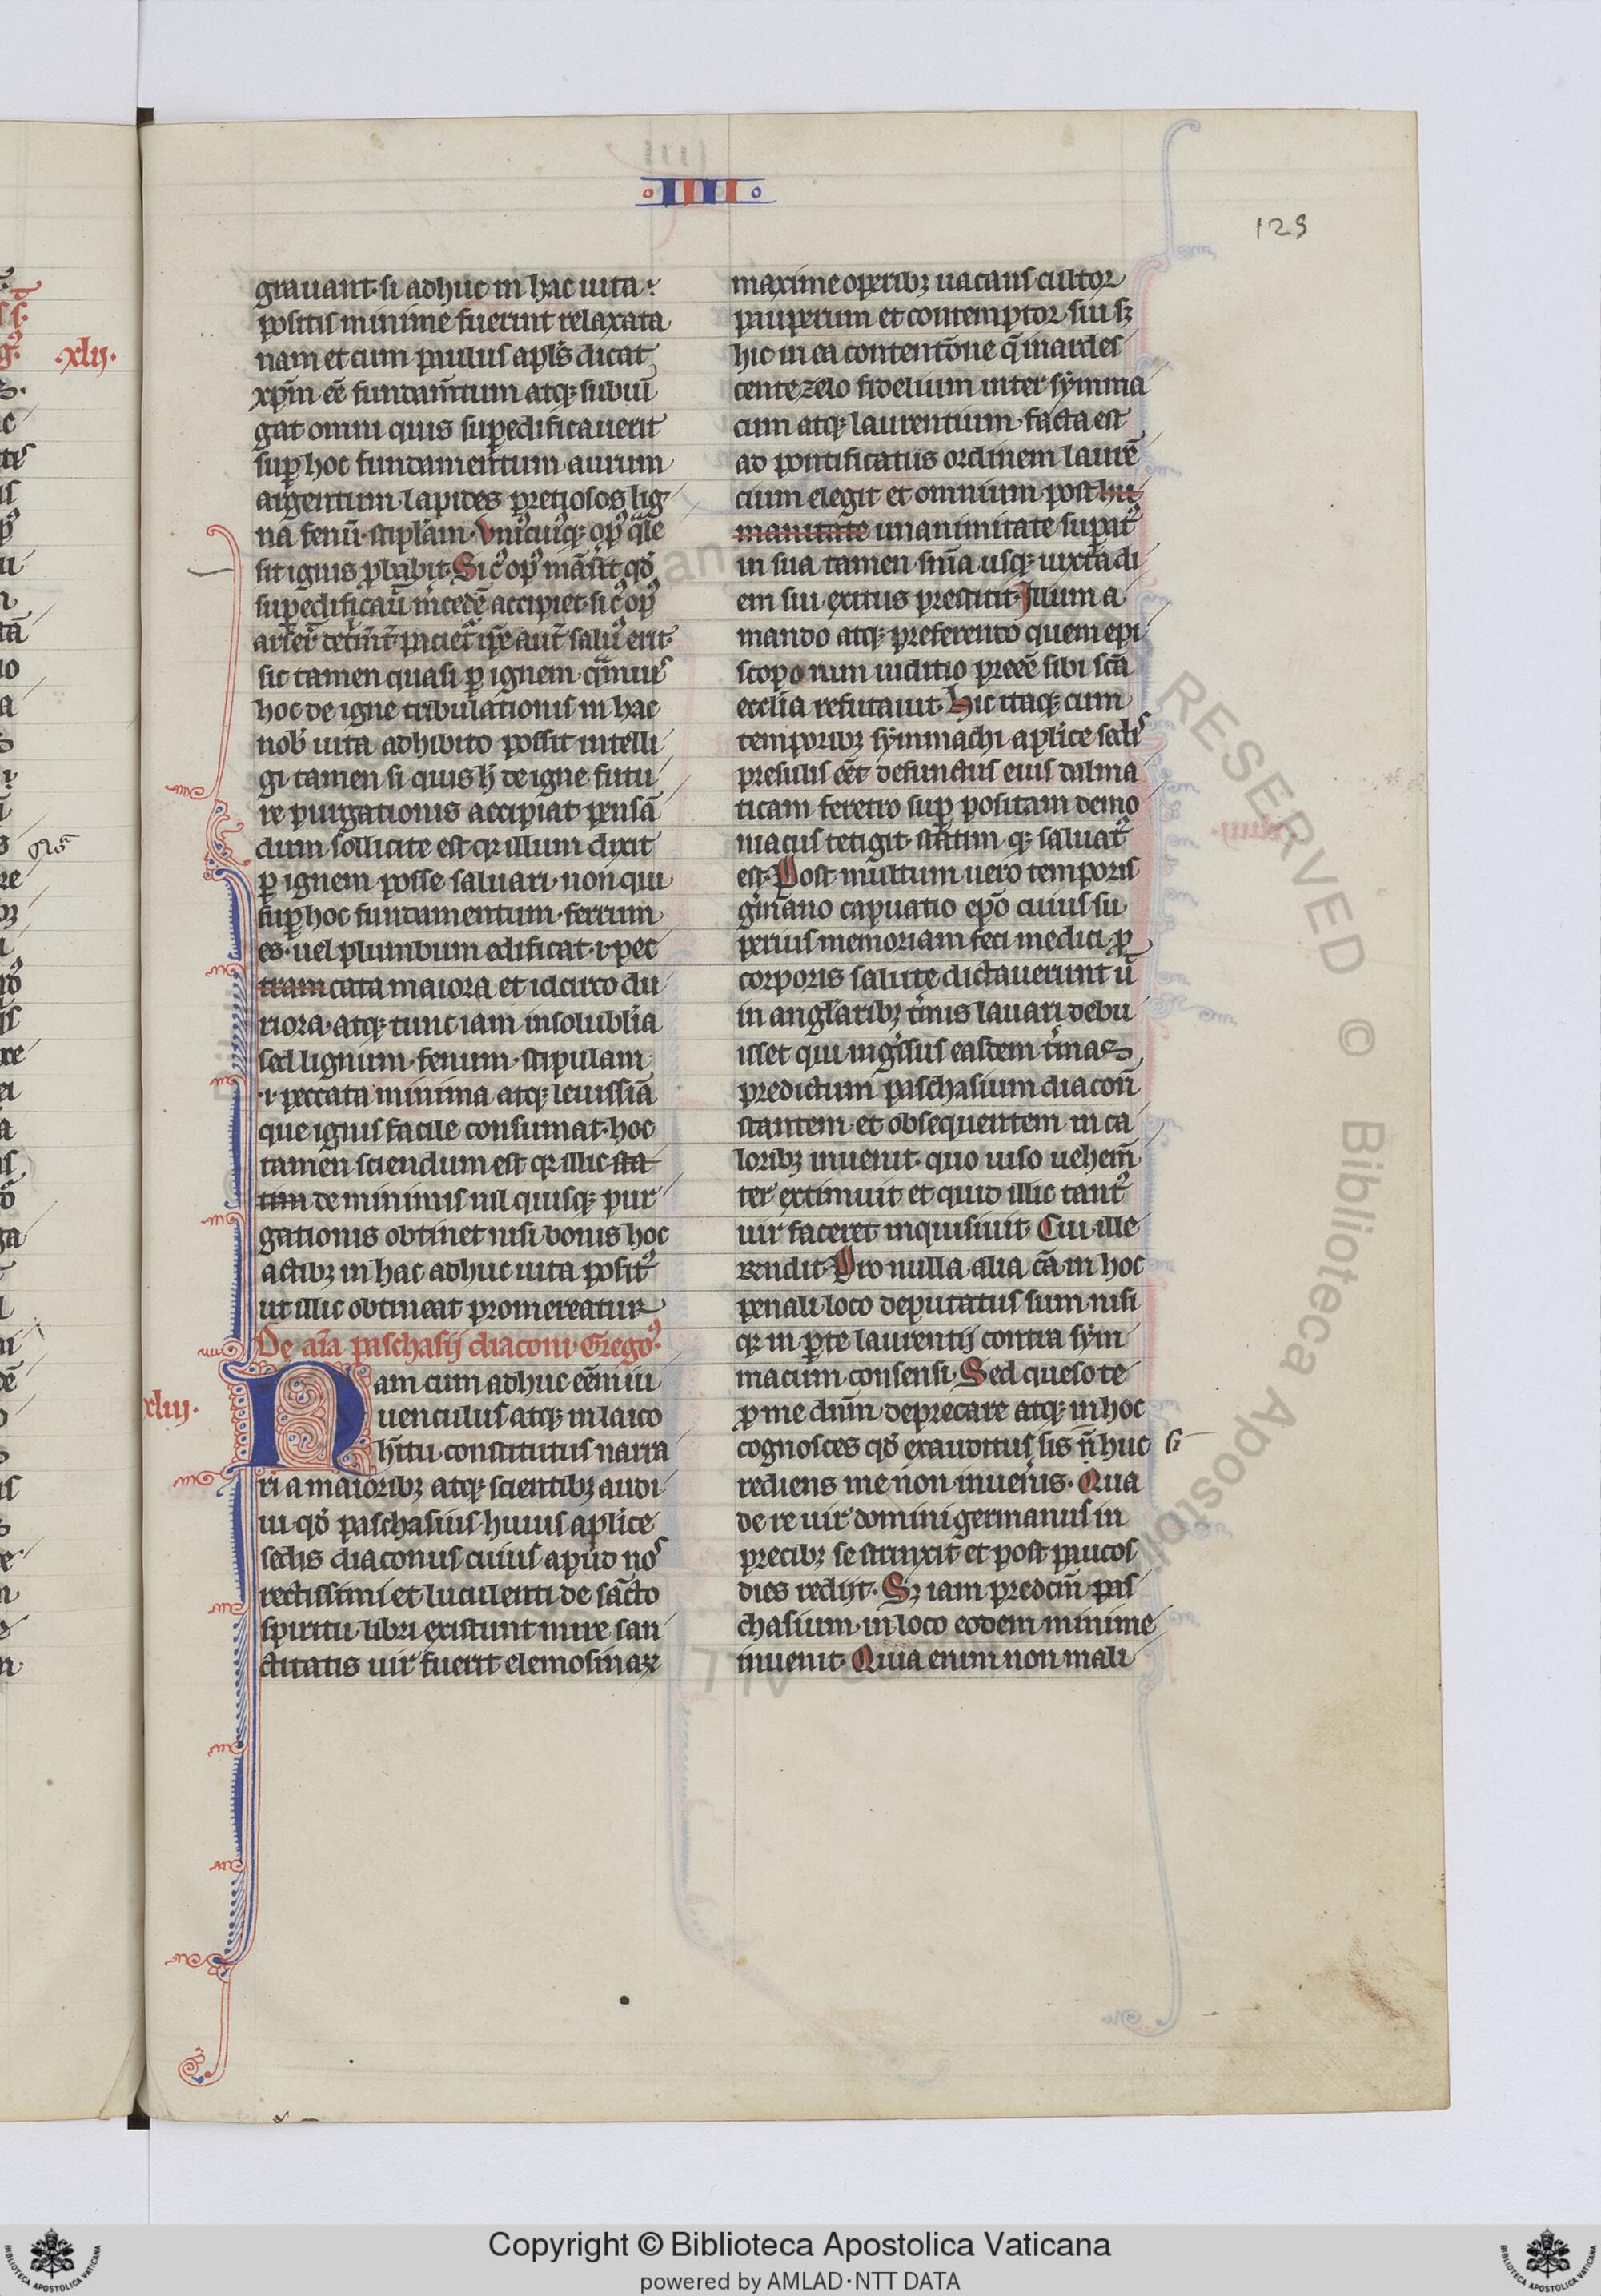 IIII
129
grauant· si adhuc in hac uita·
positis minime fuerint relaxata
nam et cum paulus apl's dicat
xp̄m eē fundam̄tum atq; subiū
gat omni quis sup̄edificauerit
sup̄ hoc fundamentum aurum
argentum lapides pretiosos lig
na fenū· stipl'am· Vnꝰcuiꝰq; opꝰ q̄le
sit ignis p̄babit· Si cꝰ opꝰ mās̄it qđ
sup̄edificau̅ m̄cedē accipiet· si cꝰ opꝰ
ars̄er̄ det̄m̄t̄ paciet̄ ip̄e aut̄ saluꝰ erit
sic tamen quasi ꝑ ignem· q̄muis
hoc de igne tribulationis in hac
nob̄ uita adhibito possit intelli
gi tamen si quis h̄ de igne futu
re purgationis accipiat pensā
dum sollicite est qr illum dixit
ꝑ ignem posse saluari· non qui
sup̄ hoc fundamentum· ferrum
es· uel plumbum edificat· i· pec
tram cata maiora et idcirco du
riora· atq; tunc iam insolublia
sed lignum· fenum· stipulam
·i· peccata minima atq; leuissīa
que ignis facile consumat· hoc
tamen sciendum est qr illic sta
tim de minimis nil quisq; pur
gationis obtinet nisi bonis hoc
actib; in hac adhuc uita positꝰ
ut illic obtineat promereatur
De aīa paschasij diaconi· Gregoꝰ·
xliij.
Nam cum adhuc eēm iu
uenculus atq; in laico
h̄itu constitutus narra
ri a maiorib; atq; scientib; audi
ui qđ paschasius huius aplice
sedis diaconus cuius apud nos
rectissimi et luculenti de sācto
spiritu libri existunt mire san
ctitatis uir fuerit elemosinar
maxime operib; uacans cultor
pauperum et contemptor sui s;
hic in ea contentōne q̄ inardes
cente zelo fidelium inter sȳmma
cum atq; laurentium· facta est
ad pontificatus ordinem laurē
cium elegit et omnium post hu
manitate unanimitate sup̄atꝰ
in sua tamen sn̄ia usq; iuxta di
em sui exitus prestitit· Illum a
mando atq; preferendo quem epi
scoporum iuditio preeē sibi sc̄a
ecc̄lia refutauit· Hic itaq; cum
temporib; sȳmmachi aplice sedis
presulis eēt defunctus eius dalma
ticam feretro sup̄ positam demo
niacus tetigit· statim q; saluatꝰ
est· Post multum uero temporis
ḡmano capuatio ep̄o cuius su
perius memoriam feci medici ꝓ
corporis salute dictauerunt ū
in angl'arib; t̄mis lauari debu
isset qui inḡssus easdem t̄mas
predictum paschasium diacon̄
stantem et obsequentem in ca
lorib; inuenit· quo uiso uehem̄
ter extimuit et quid illic tantꝰ
uir faceret inquisiuit· Cui ille
rendit· Pro nulla alia cā in hoc
penali loco deputatus sum nisi
qr in ꝑte laurentij contra sȳm
macum consensi· Sed queso te
ꝓ me dn̄m deprecare atq; in hoc
cognosces qđ exauditus sis n̄ huc si
rediens me non inueneris· Qua
de re uir domini germanus in
precib; se strinxit et post paucos
dies redijt· S; iam predcm̄ pas
chasium· in loco eodem minime
inuenit· Quia enim non mali
xlij.
RESERVED © Biblioteca Apostolica
Copyright © Biblioteca Apostolica Vaticana
powered by AMLAD·NTT DATA